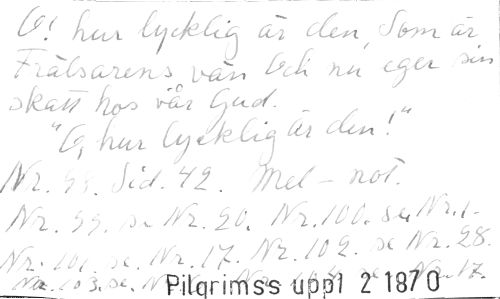 O! hur lycklig är den, Som är
Frälsarens vän Och nu eger sin
skatt hos vår Gud.
"O, hur lycklig är den!"
Nr. 99. Sid. 42. Mel-not.
Nr. 99. se Nr. 20. Nr. 100. se Nr. 1.
Nr. 101. se Nr. 17. Nr. 102. se Nr. 28.
Nr. 103. se Nr. se Nr. 17.
Pilgrimss uppl 2 1870